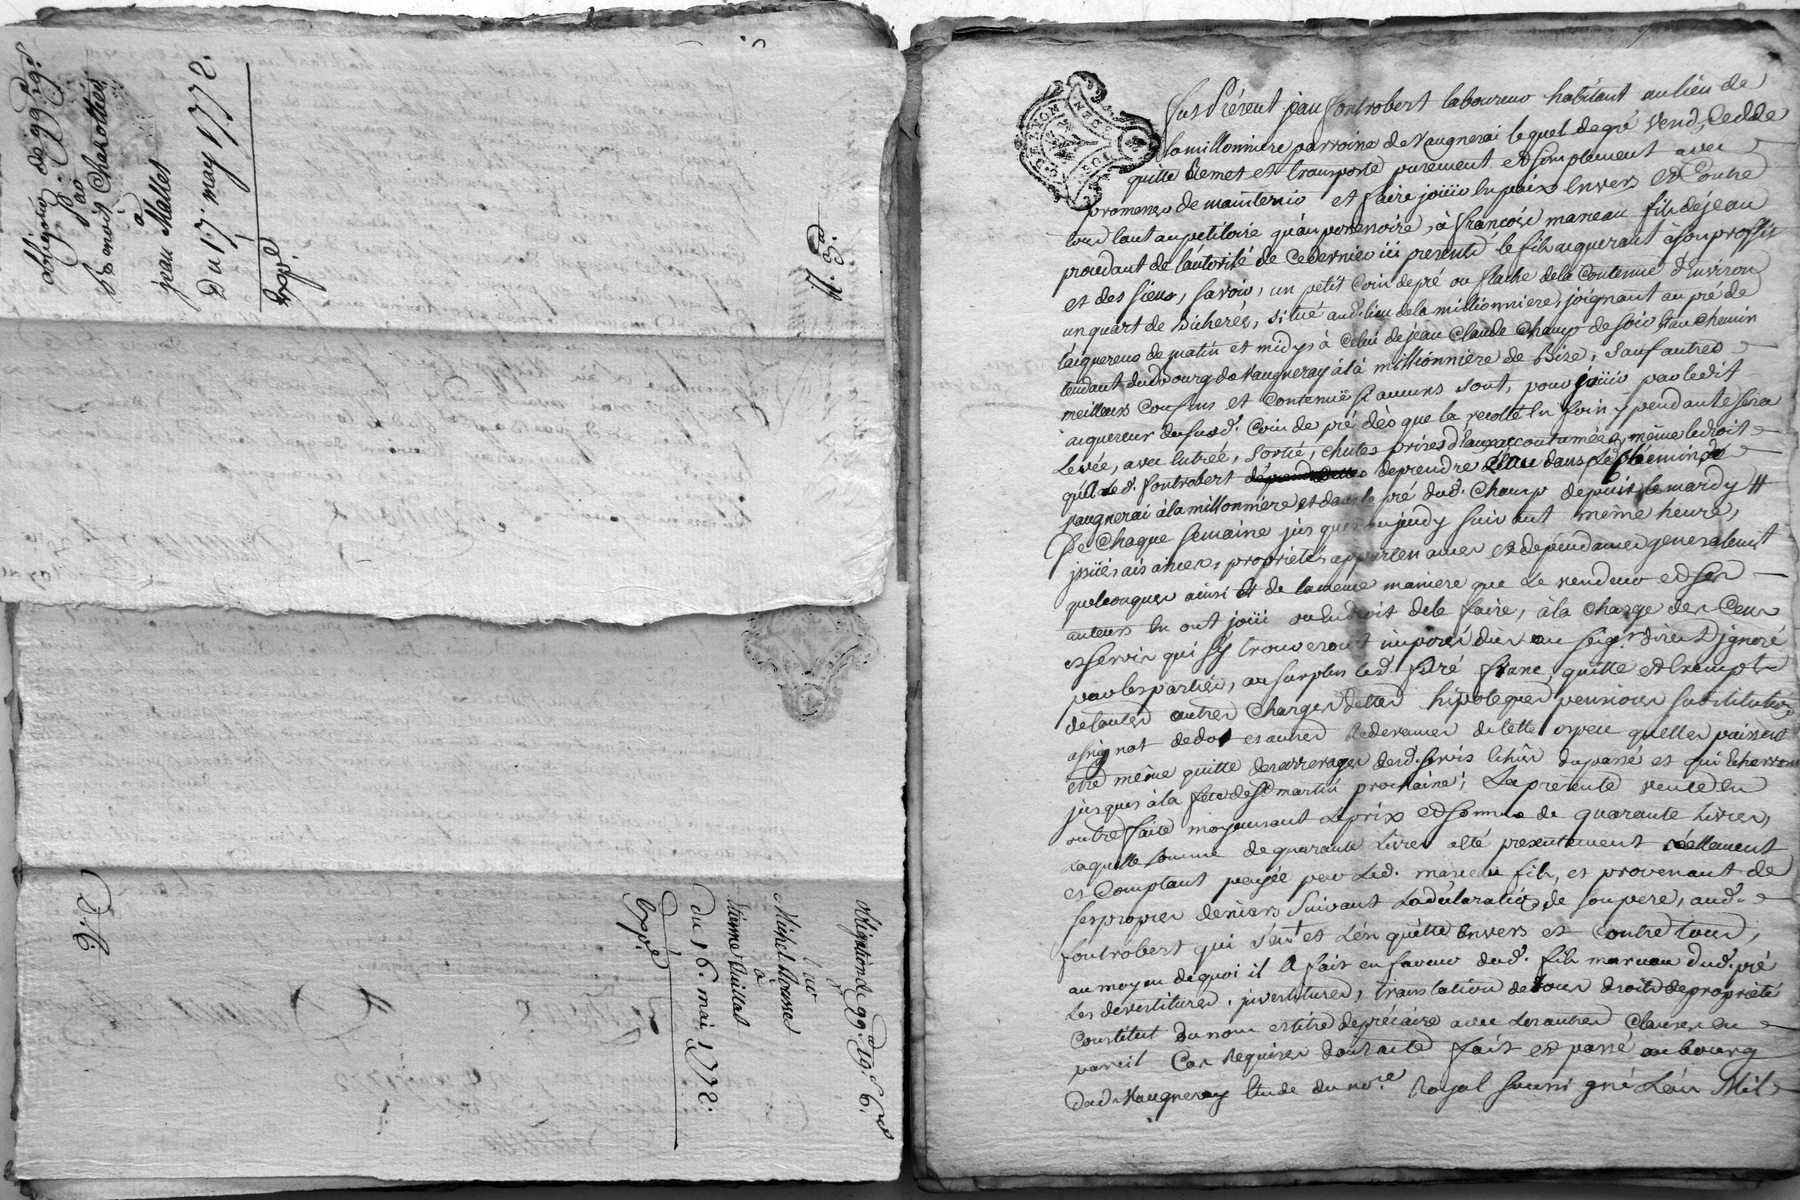 obligation de 99# 19s
par
Benoit Charottier
à
jean Mallet
Du 17. may 1772.
Expé
obligation de 99# 19s 6d
par
à
Etienne Guillot
du 16. mai 1772.
Expé
Fut Présent jean fontrobert laboureur habitant au lieu de
la millonniere parroisse de Vaugnerai lequel de gré vend, Cedde
quitte demet et transporte purement et simplement avec
promesse de maintenir et faire joüir en paix Envers et Contre
tous tant au petitoire qu'au possessoire, à françois mareau fils de jean
procedant de l'autorité de ce dernier ici present le fils aquerant à son proffit
et des siens, savoir, un petit Coin de pré ou flache de la Contenue d'Environ
un quart de bicherée, situé aud. lieu de la millionniere, joignant au pré de
l'aquereur de matin et midy, à Celui de jean Claude Champ de soir & au Chemin
tendant du bourg de Vaugneray à la millionniere de bize, sauf autres
meilleurs Confins et Contenuë si aucuns sont, pour joüir par ledit
aquereur du susd. Coin de pré dès que la recolte en foin y pendante sera
Levée, avec entrée, sortie, chutes prises d'eau accoutumées, même le droit
qu'a led. fontrobert de prendre l'eau dans le Chemin de
vaugnerai à la millonniere et dans le pré dud. Champ depuis le mardy #
De Chaque semaine jusques au jeudy suivant même heure,
joüissances, proprietés appartenances et dépendances generalement
quelconques ainsi et de la meme maniere que Le vendeur et ses
auteurs En ont joüi ou eu droit de le faire, à la Charge des Cens
et servis qui s'y trouveront imposés dus au seigr. direct ignoré
par les parties, au surplus led. pré franc, quitte et Exempt
de toutes autres Charges dettes hipoteques pensions substitution
assignat de dot et autres Redevances de telle espece quelles puissent
etre même quitte des arrerages desd. servis Echus du passé et qui Echerront
jusques à la fête de St martin prochaine; La presente vente En
outre faite moyennant Le prix et somme de quarante Livres,
Laquelle somme de quarante Livres a eté presentement réellement
et Comptant payée par Led. mareau fils, et provenant de
ses propres deniers suivant La déclaration de son pere, aud.
fontrobert qui s'en Contente et L'en quitte Envers et Contre tous,
au moyen de quoi il a fait en faveur dud. fils mareau dud. pré
Les devestitures, jnvestitures, translation de tous droits de proprieté
Constitut du nom et titre de précaire avec Les autres Clauses En
pareil Cas Requises dont acte fait et passé au bourg
dud. Vaugneray Etude du nore. Royal soussigné L'an Mil